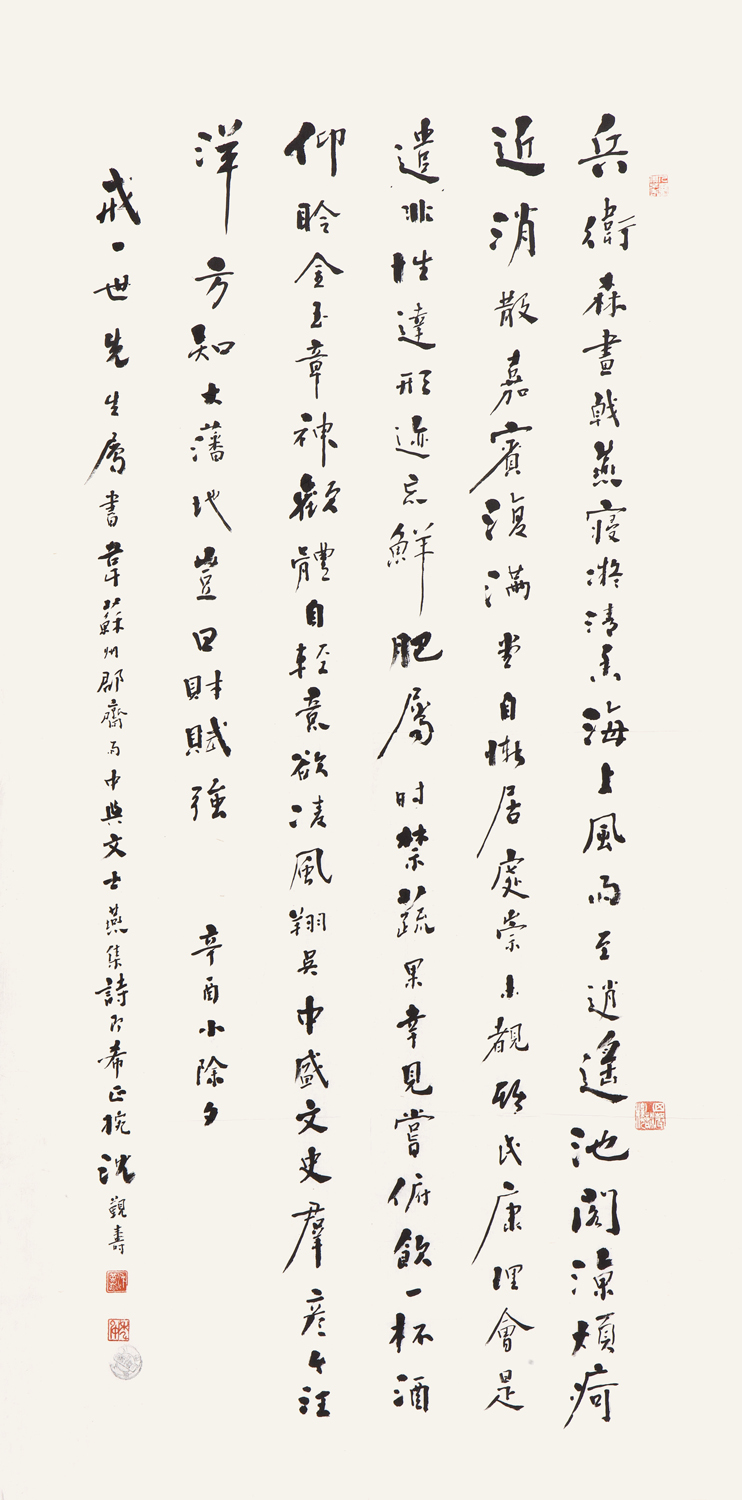 兵衛森畫戟燕寢凝清香海上風雨至逍遙池閣涼煩疴
近消散嘉賓復滿堂自慚居處崇未覩斯民康理會是
遣非性達形迹忘鮮肥屬时禁蔬果幸見嘗俯飲一杯酒
仰聆金玉章神歡體自輕意欲凌風翔吳中盛文史羣彥今汪
洋方知大藩地豈曰財賦強 辛酉小除夕
戒一世先生屬書韋蘇州郡齋雨中與文士燕集詩即希正捥 沈觀壽